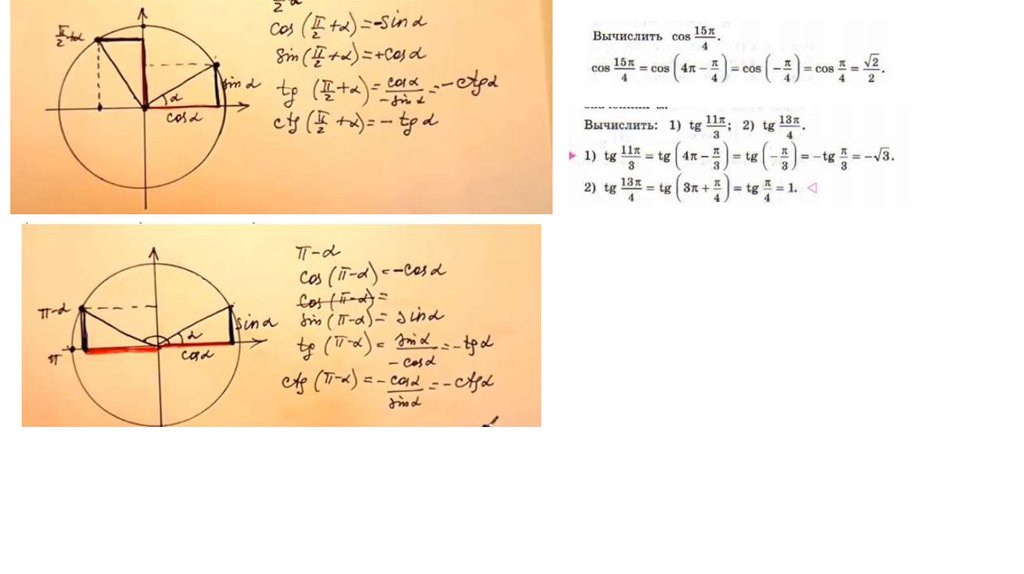 π/2 α
cos (π/2 + α) = -sin α
sin (π/2 + α) = + cos α
tg (π/2 + α) = cos α / -sin α = - ctg α
ctg (π/2 + α) = - tg α
π/2 + α
sin α
α
cos α
Вычислить cos 15π/4.
cos 15π/4 = cos (4π − π/4) = cos (−π/4) = cos π/4 = √2/2.
Вычислить: 1) tg 11π/3; 2) tg 13π/4.
1) tg 11π/3 = tg (4π − π/3) = tg (−π/3) = −tg π/3 = −√3.
2) tg 13π/4 = tg (3π + π/4) = tg π/4 = 1.
π-α
cos (π-α) = -cos α
cos (π-α) =
sin (π-α) = sin α
tg (π-α) = sin α / -cos α = -tg α
ctg (π-α) = - cos α / sin α = -ctg α
π-α
π
sin α
α
cos α